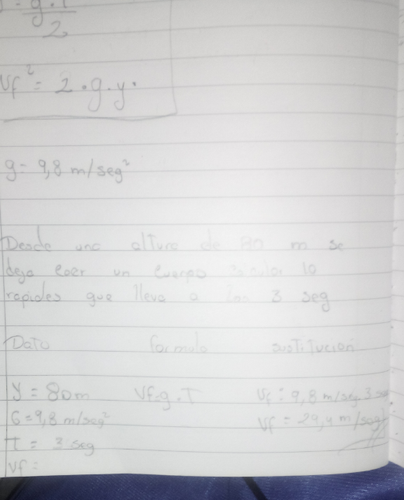 g.T
2
Vf² = 2.g.y.
g = 9,8 m/seg²
Desde una altura de m se
deja caer un cuerpo la
rapides que lleva a los 3 seg
Dato formula sustitucion
y = 80m Vf=g.T Vf = 9,8 m/seg. 3 seg
G = 9,8 m/seg² Vf = 29,4 m/seg
T = 3 seg
Vf =